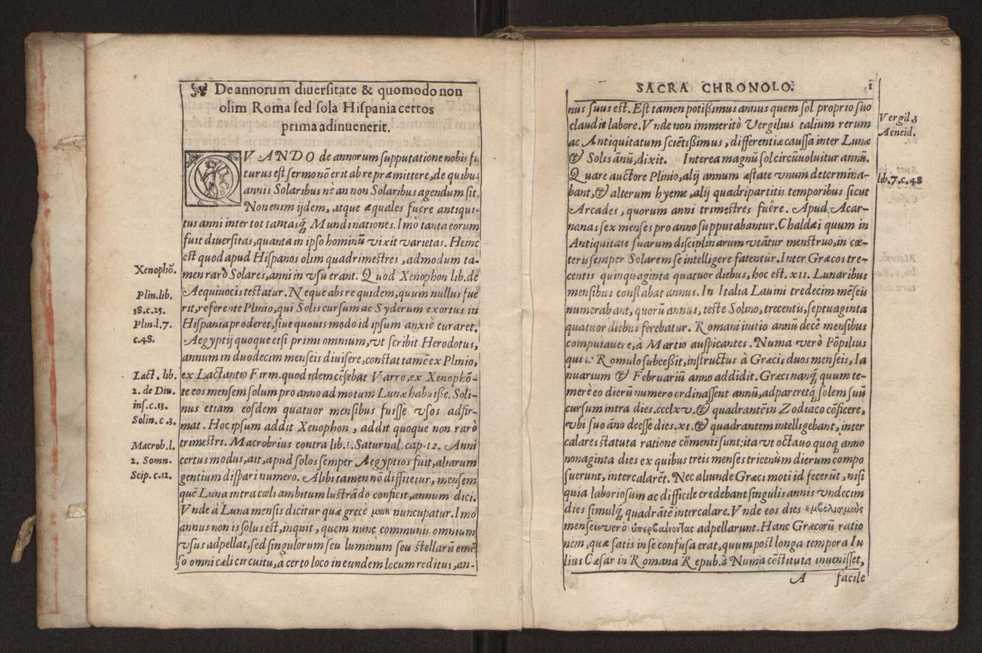 De annorum diuersitate & quomodo non
olim Roma sed sola Hispania certos
prima adinuenerit.
QVANDO de annorum supputatione nobis fu
turus est sermonē erit ab re præmittere, de quibus
annis Solaribus nè an non Solaribus agendum sit.
Non enim ijdem, atque æquales fuêre antiqui-
tus anni inter tot tantasq́ Mundi nationes. Imò tanta eorum
fuit diuersitas, quanta in ipso hominū vixit varietas. Heinc
est quod apud Hispanos olim quadrimestres, admodum ta-
men rarò Solares, anni in vsu erant. Quod Xenophon lib. de
Aequiuocis testatur. Neque abs re quidem, quum nullus fue
rit, referente Plinio, qui Solis cursum ac Syderum exortus in
Hispania proderet, siue quouis modo id ipsum anxiè curaret.
Aegyptij quoque etsi primi omnium, vt scribit Herodotus,
annum in duodecim menseis diuisere, constat tamē ex Plinio,
ex Lactantio Firm. quod idem cēsebat Varro, ex Xenophō-
te eos mensem solum pro anno ad motum Lunæ habuisse. Soli-
nus etiam eosdem quatuor mensibus fuisse vsos adfir-
mat. Hoc ipsum addit Xenophon, addit quoque non rarò
trimestri. Macrobius contra lib. 1. Saturnal. cap. 12. Anni
certus modus, ait, apud solos semper Aegyptios fuit, aliarum
gentium dispari numero. Alibi tamen nō diffitetur, mensem
quē Luna intra cœli ambitum lustrādo conficit, annum dici.
Vnde à Luna mensis dicitur quæ græcè μωη nuncupatur. Imò
annus non is solus est, inquit, quem nunc communis omnium
vsus adpellat, sed singulorum seu luminum seu stellarū eme-
so omni cæli circuitu, a certo loco in eundem locum reditus, an-
Xenophō.
Plin. lib.
18. c. 25.
Plin. l. 7.
c. 48.
Lact. lib.
2. de Diu.
ins. c. 13.
Solin. c. 3.
Macrob. l.
2. Somn.
Scip. c. 12.
SACRA CHRONOLO. 1
nus suus est. Est tamen potissimus annus quem sol proprio suo
claudit labore. Vnde non immeritò Vergilius talium rerum
ac Antiquitatum sciētissimus, differentiæ caussa inter Lunæ
& Solis ānū, dixit. Interea magnū sol circūuoluitur annū.
Quare auctore Plinio, alij annum æstate vnum determina-
bant, & alterum hyeme, alij quadripartitis temporibus sicut
Arcades, quorum anni trimestres fuêre. Apud Acar-
nanas sex menses pro anno supputabantur. Chaldæi quum in
Antiquitate suarum disciplinarum vtātur menstruo, in cæ-
teris semper Solarem se intelligere fatentur. Inter Græcos tre-
centis quinquaginta quatuor diebus, hoc est. xii. Lunaribus
mensibus constabat annus. In Italia Lauini tredecim mēseis
numerabant, quorū annus, teste Solino, trecentis, septuaginta
quatuor diebus ferebatur. Romani initio annū decē mensibus
computauere, à Martio auspicantes. Numa verò Pōpilius
qui Romulo subcessit, instructus à Græcis duos menseis, Ia
nuarium & Februariū anno addidit. Græci nanq́ quum te-
merè eo dierū numero ordinassent annū, adpareretq́ solem suū
cursum intra dies. ccclxv. & quadrantē in Zodiaco cōficere,
vbi suo āno deesse dies. xi. & quadrantem intelligebant, inter
calares statuta ratione cōmenti sunt: ita vt octauo quoq́ anno
nonaginta dies ex quibus treis menses tricenūm dierum compo
suerunt, intercalarēt. Nec aliunde Græci moti id fecerūt, nisi
quia laboriosum ac difficile credebant singulis annis vndecim
dies simulq́ quadrātē intercalare. Vnde eos dies ἐμβολισμοὺς
menseis verò ὑπερβαίνοντας adpellarunt. Hanc Græcorū ratio
nem, quæ satis in se confusa erat, quum post longa tempora Iu
lius Cæsar in Romana Repub. à Numa cōstituta inuenisset,
A facile
Vergil. 3
Aeneid.
lib. 7. c. 48